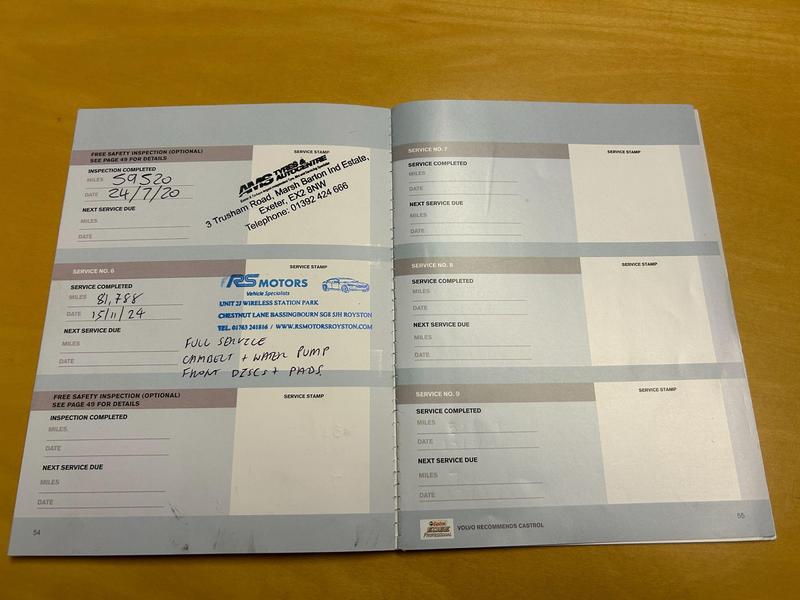 FREE SAFETY INSPECTION (OPTIONAL)
SEE PAGE 49 FOR DETAILS
SERVICE STAMP
INSPECTION COMPLETED
MILES 59520
DATE 24/7/20
NEXT SERVICE DUE
MILES
DATE
AMS TYRES &
AUTOCENTRE
3 Trusham Road, Marsh Barton Ind Estate,
Exeter, EX2 8NW
Telephone: 01392 424 666
SERVICE NO. 6
SERVICE STAMP
SERVICE COMPLETED
MILES 81,788
DATE 15/11/24
NEXT SERVICE DUE
MILES
DATE
RS MOTORS
Vehicle Specialists
UNIT 2J WIRELESS STATION PARK
CHESTNUT LANE BASSINGBOURN SG8 5JH ROYSTON
TEL. 01763 241816 / WWW.RSMOTORSROYSTON.COM
FULL SERVICE
CAMBELT + WATER PUMP
FRONT DISCS + PADS.
FREE SAFETY INSPECTION (OPTIONAL)
SEE PAGE 49 FOR DETAILS
SERVICE STAMP
INSPECTION COMPLETED
MILES
DATE
NEXT SERVICE DUE
MILES
DATE
54
SERVICE NO. 7
SERVICE STAMP
SERVICE COMPLETED
MILES
DATE
NEXT SERVICE DUE
MILES
DATE
SERVICE NO. 8
SERVICE STAMP
SERVICE COMPLETED
MILES
DATE
NEXT SERVICE DUE
MILES
DATE
SERVICE NO. 9
SERVICE STAMP
SERVICE COMPLETED
MILES
DATE
NEXT SERVICE DUE
MILES
DATE
Castrol
EDGE
Professional
VOLVO RECOMMENDS CASTROL
55